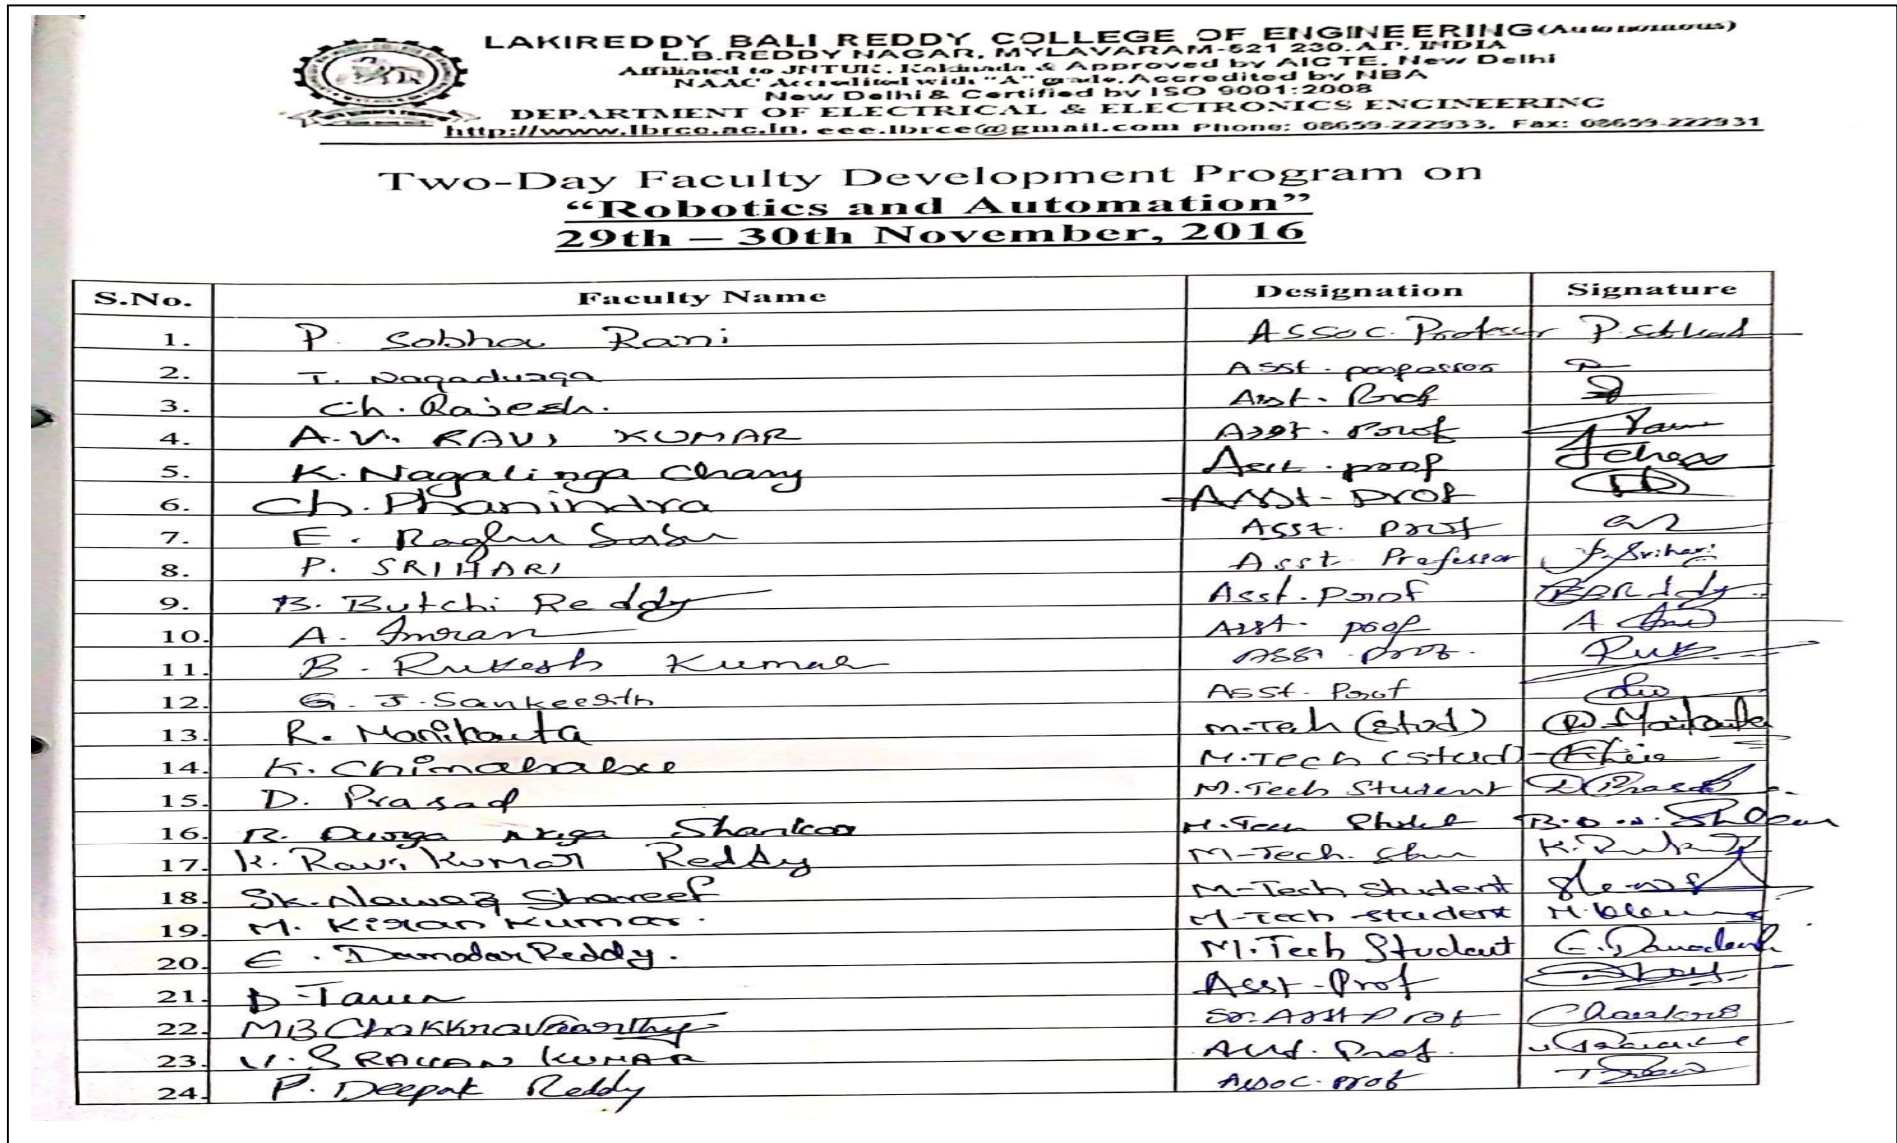 LAKIREDDY BALI REDDY COLLEGE OF ENGINEERING (Autonomous)
L.B.REDDY NAGAR, MYLAVARAM-521 230. A.P. INDIA
Affiliated to JNTUK, Kakinada & Approved by AICTE, New Delhi
NAAC Accredited with "A" grade, Accredited by NBA
New Delhi & Certified by ISO 9001:2008
DEPARTMENT OF ELECTRICAL & ELECTRONICS ENGINEERING
http://www.lbrce.ac.in, eee.lbrce@gmail.com Phone: 08659-222933, Fax: 08659-222931
Two-Day Faculty Development Program on
“Robotics and Automation”
29th – 30th November, 2016
S.No. Faculty Name Designation Signature
1. P. Sobha Rani Assoc. Professor
2. T. Nagadurga Asst. professor
3. Ch. Rajesh. Asst. Prof
4. A.V. RAVI KUMAR Asst. Prof
5. K. Nagalinga Chary Asst. prof
6. Ch. Phanindra Asst. Prof
7. E. Raghu Babu Asst. Prof
8. P. SRIHARI Asst. Professor P. Srihari
9. B. Butchi Reddy Asst. Prof
10. A. Imran Asst. prof
11. B. Rukesh Kumar Asst. Prof.
12. G. J. Sankeerth Asst. Prof
13. R. Manikanta M.Tech (stud)
14. K. Chinababu M.Tech (stud)
15. D. Prasad M.Tech Student D Prasad
16. B. Durga Naga Shankar M.Tech
17. K. Ravi Kumar Reddy M-Tech.
18. Sk. Nawaz Shareef M-Tech Student
19. M. Kiran Kumar. M-Tech student
20. E. Damodar Reddy. M.Tech Student
21. D. Asst-Prof
22. MB Chakkravarthy Sr. Asst Prof
23. V. SRAVAN KUMAR Asst. Prof.
24. P. Deepak Reddy Assoc. prof